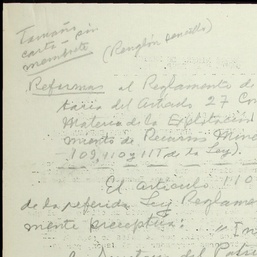 Tamaño
carta sin
membrete
(Renglón sencillo)
Reformas al Reglamento de
taria del Artículo 27 Con
Materia de la Explotación
miento de Recursos Mine
109, 110 y 111 de la Ley).
El artículo 110
de la referida Ley Reglame
mente preceptúa:
"In